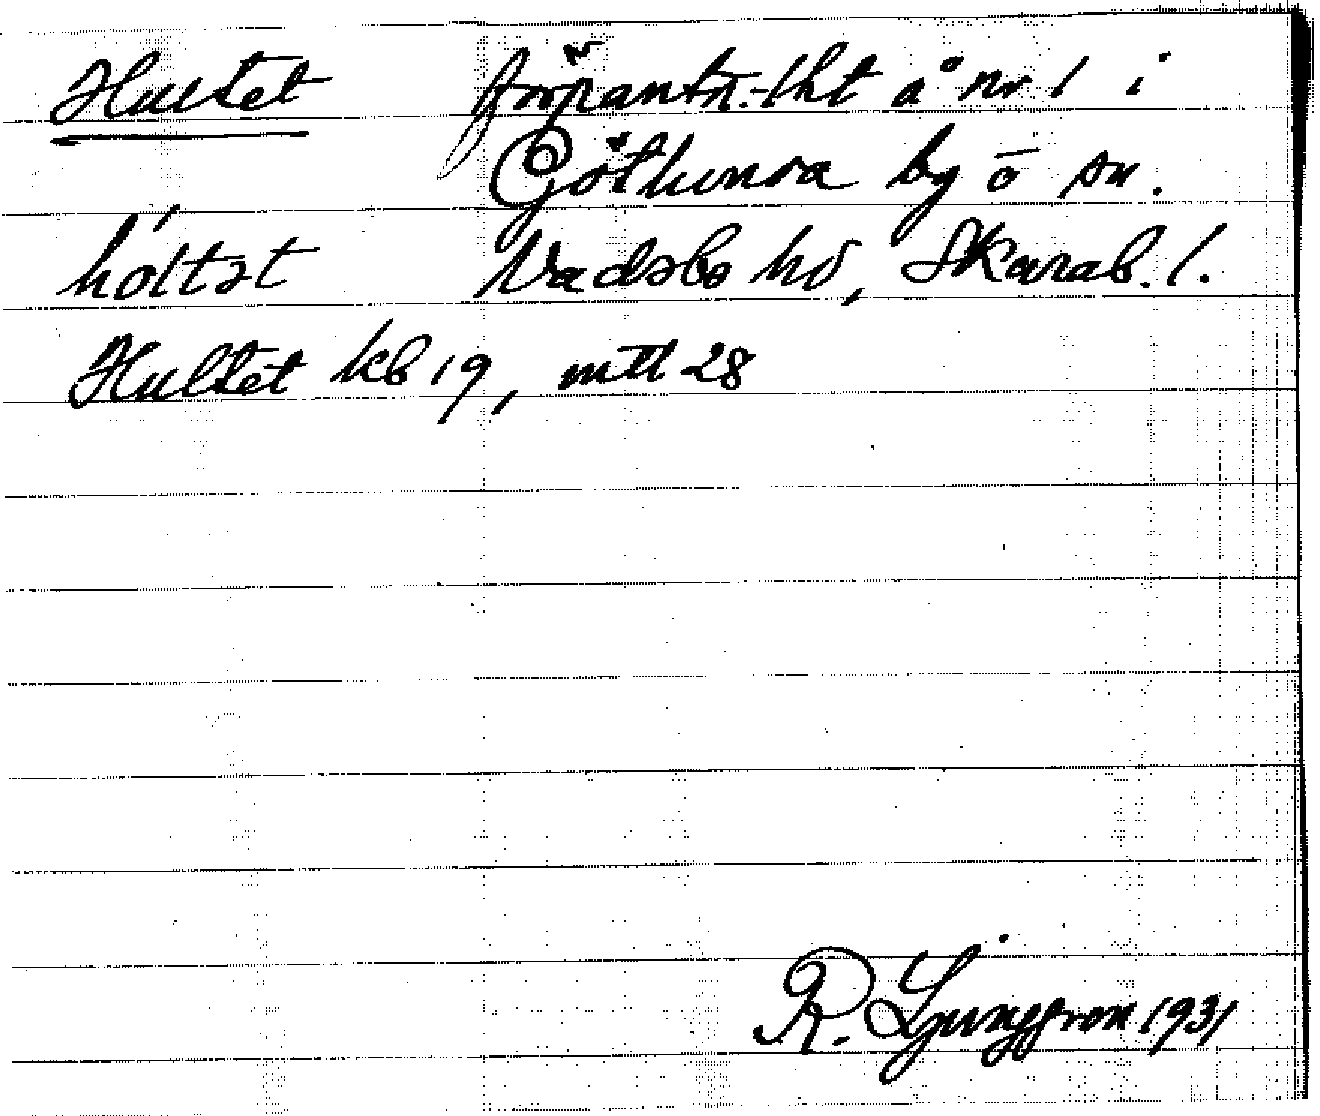 Hultet förpantn.-lht å nr 1 i
Götlunda by o sn.
hóltət Vadsbo hd, Skarab. l.
Hultet kb 19, mtl 28
R. Ljunggren 1931